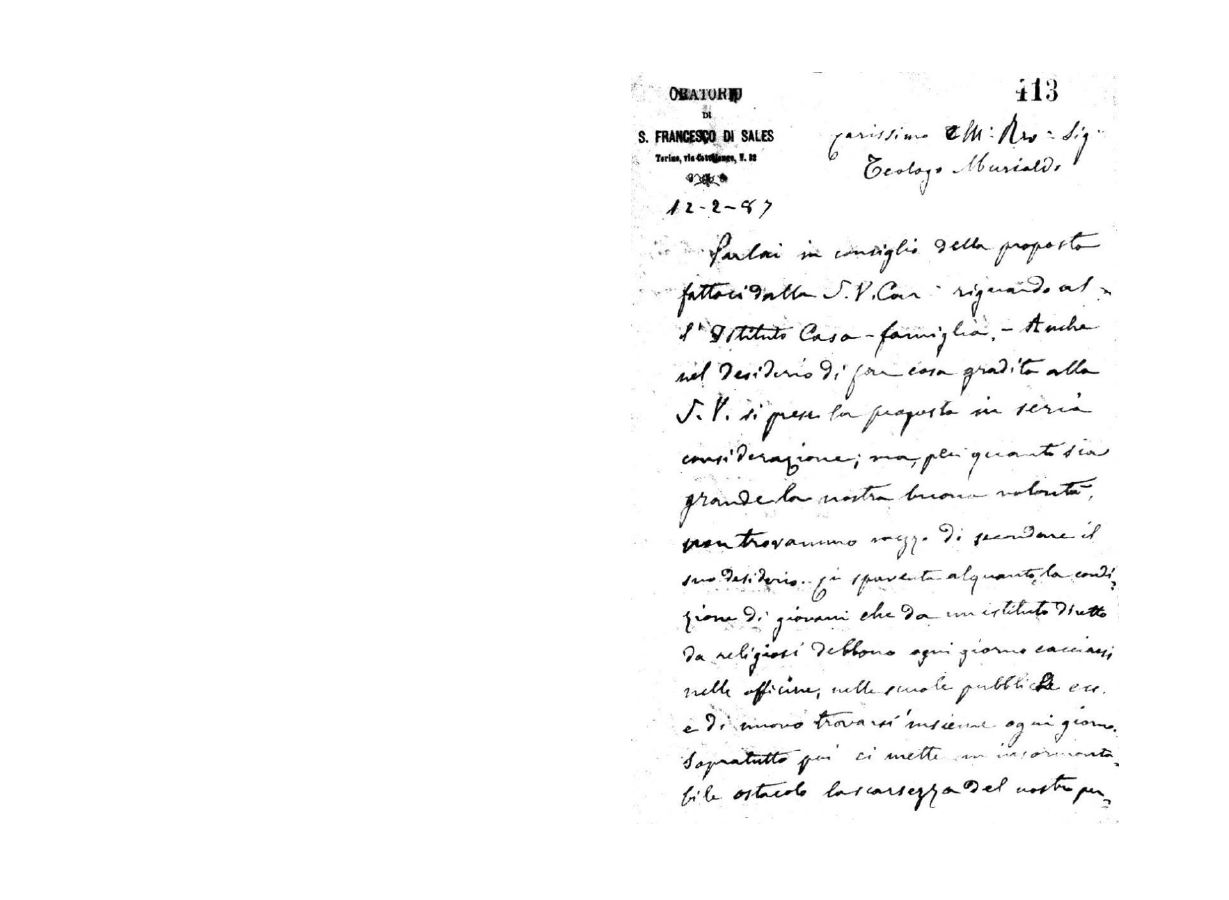 ORATORIO
DI
S. FRANCESCO DI SALES
Torino, via Cottolengo, N. 32
413
Carissimo e M. Rev. Sig.
Teologo Murialdo
12-2-87
Parlai in consiglio della proposta
fattaci dalla S. V. Car. riguardo al-
l'Istituto Casa-famiglia. - Anche
nel desiderio di far cosa gradita alla
S. V. si prese la proposta in seria
considerazione; ma, per quanto sia
grande la nostra buona volontà,
non trovammo mezzo di secondare il
suo desiderio. Ci spaventa alquanto la condi-
zione di giovani che da un istituto diretto
da religiosi debbono ogni giorno cacciarsi
nelle officine, nelle scuole pubbliche ecc.
e di nuovo trovarsi insieme ogni giorno.
Sopratutto poi ci mette un insormonta-
bile ostacolo la scarsezza del nostro per-